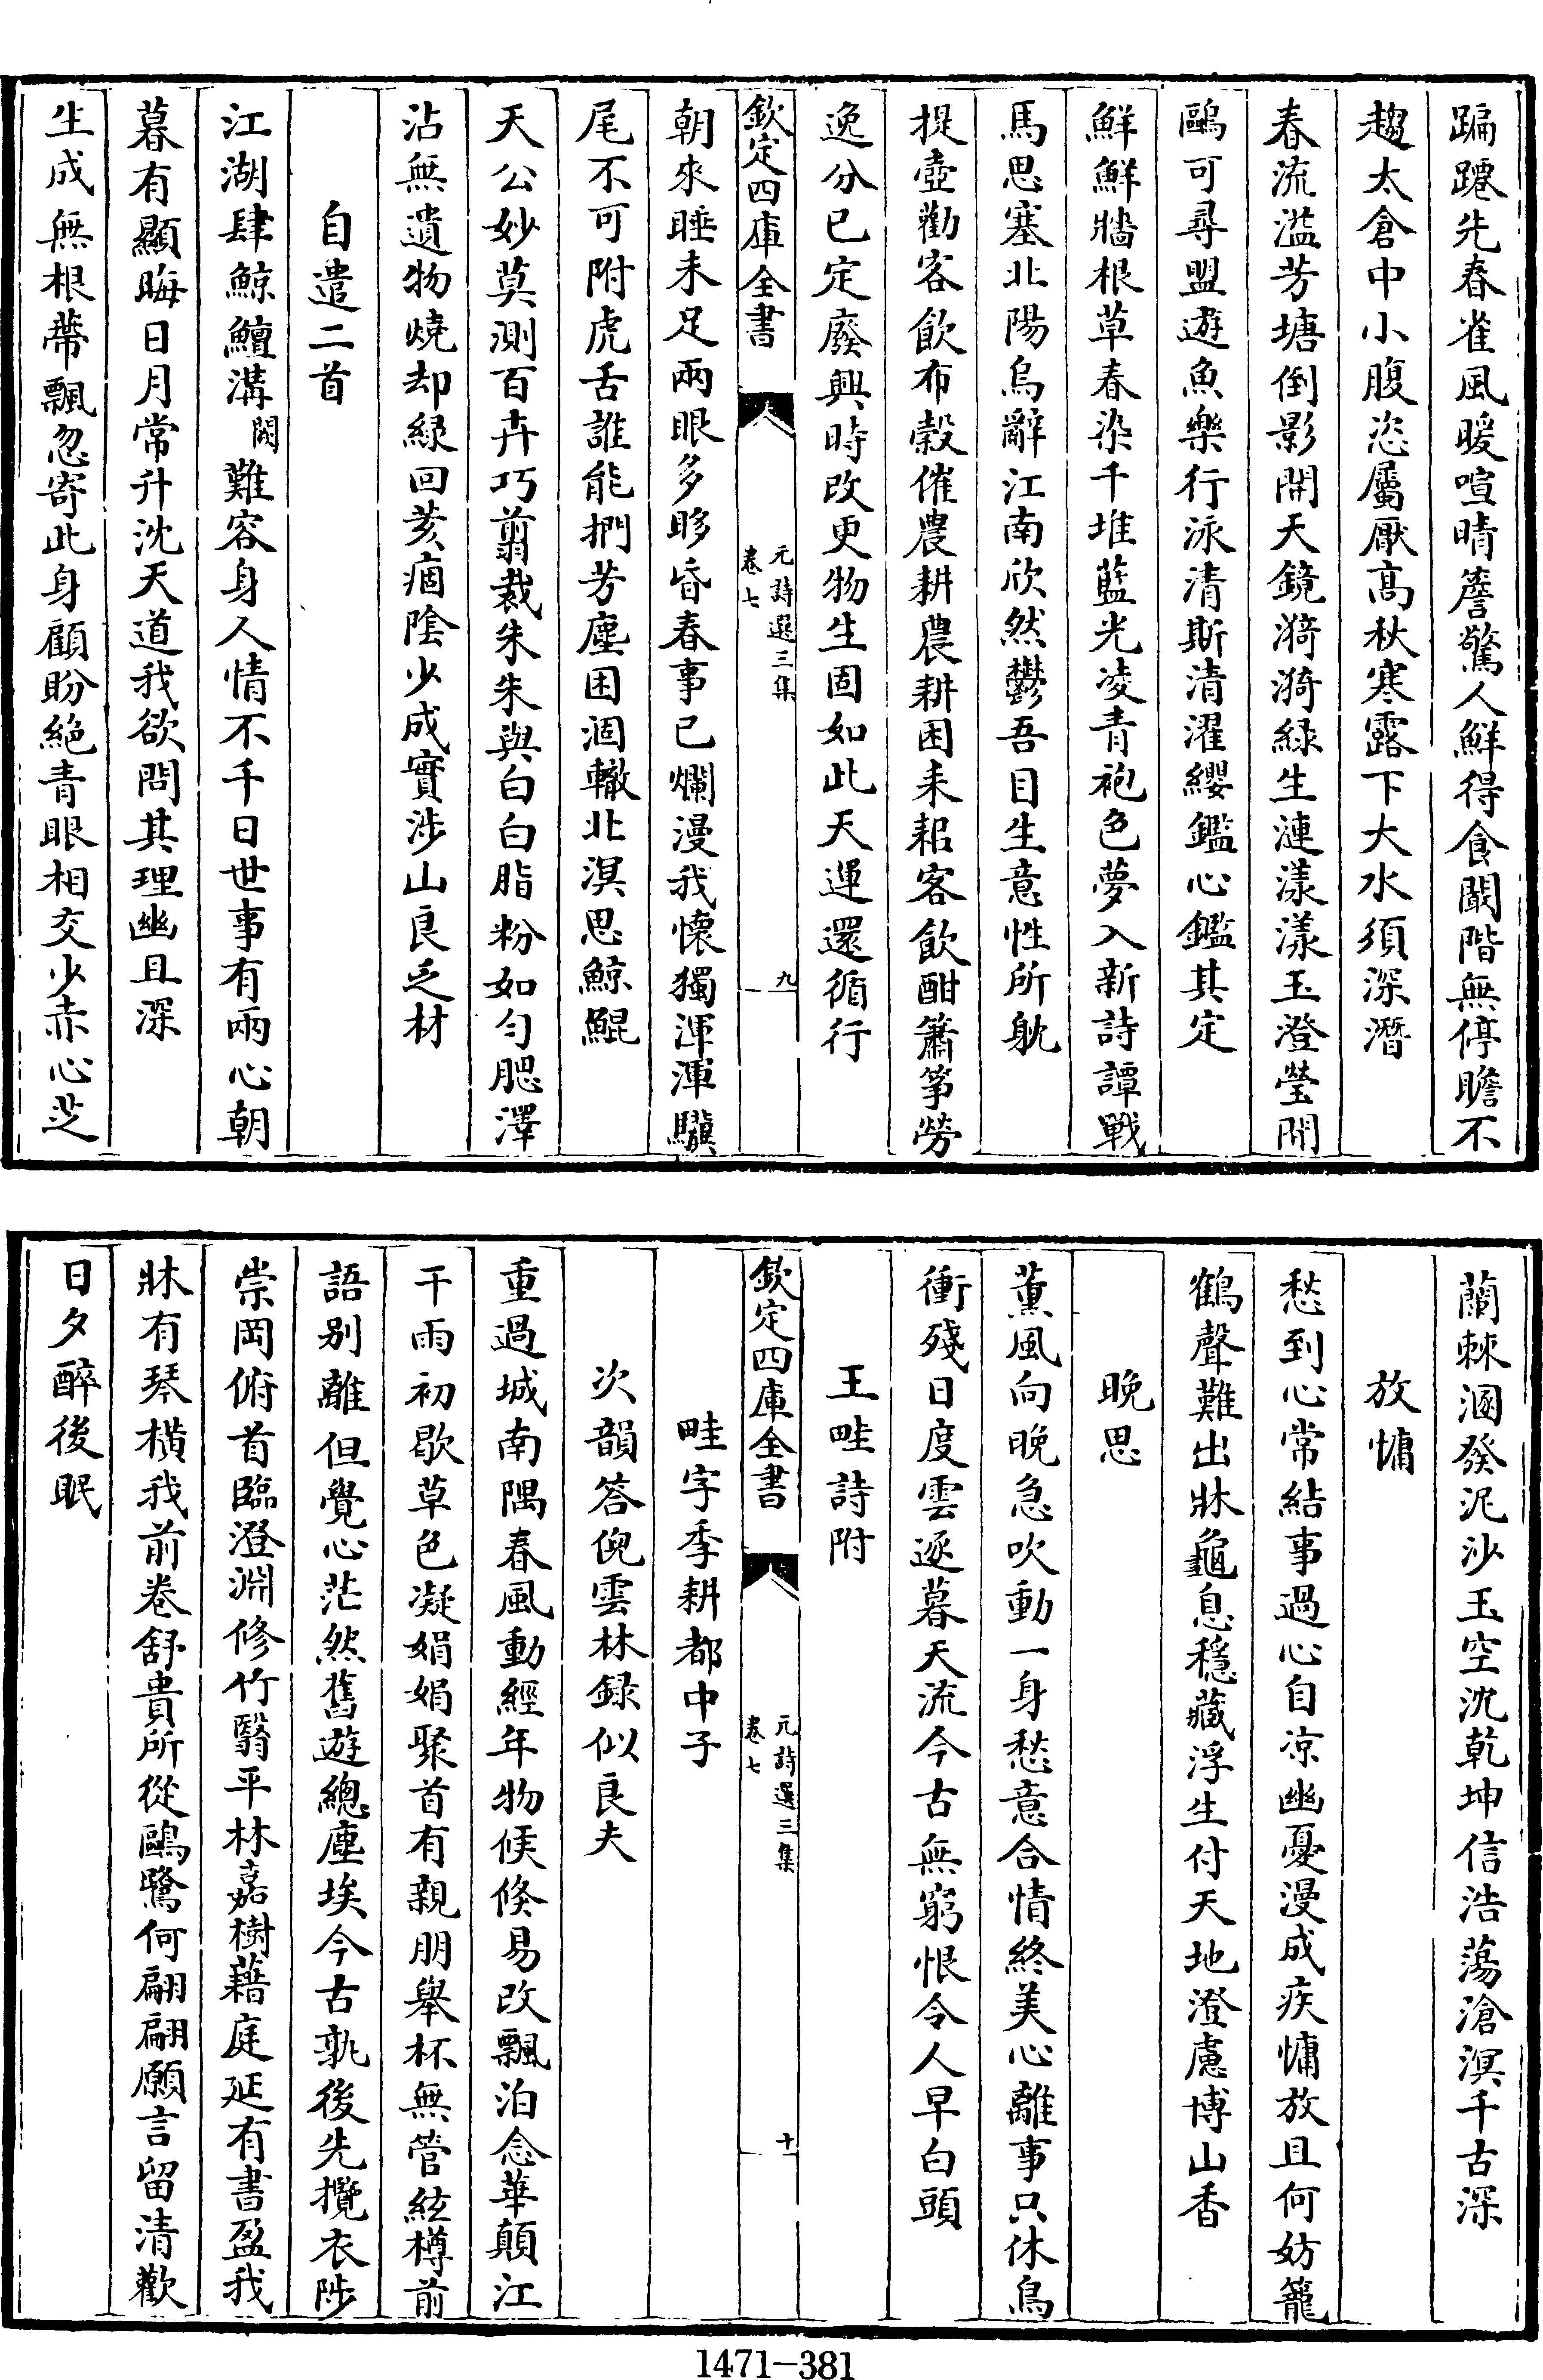 蹁躚先春雀風暖喧晴簷驚人鮮得食闞階無停瞻不
趨太倉中小腹恣屬厭高秋寒露下大水須深潛
春流溢芳塘倒影開天鏡漪漪緑生漣漾漾玉澄瑩閒
鷗可尋盟遊魚樂行泳清斯清濯纓鑑心鑑其定
鮮鮮牆根草春染千堆藍光凌青袍色夢入新詩譚戰
馬思塞北陽烏辭江南欣然鬱吾目生意性所躭
提壺勸客飲布穀催農耕農耕困耒耜客飲酣簫筝勞
逸分已定廢興時改更物生固如此天運還循行
欽定四庫全書
元詩選三集
卷七
九
朝來睡未足兩眼多眵昏春事已爛漫我懷獨渾渾驥
尾不可附虎舌誰能捫芳塵困涸轍北溟思鯨鯤
天公妙莫測百卉巧翦裁朱朱與白白脂粉如勻腮澤
沾無遺物燒却緑回荄痼陰少成實涉山良乏材
自遣二首
江湖肆鯨鱣溝闕難容身人情不千日世事有兩心朝
暮有顯晦日月常升沈天道我欲問其理幽且深
生成無根蔕飄忽寄此身顧盼絶青眼相交少赤心芝
蘭棘溷發泥沙玉空沈乾坤信浩蕩滄溟千古深
放慵
愁到心常結事過心自凉幽憂漫成疾慵放且何妨籠
鶴聲難出牀龜息穩藏浮生付天地澄慮博山香
晚思
薰風向晚急吹動一身愁意合情終美心離事只休鳥
衝殘日度雲逐暮天流今古無窮恨令人早白頭
王畦詩附
欽定四庫全書
元詩選三集
卷七
十
畦字季耕都中子
次韻答倪雲林録似良夫
重過城南隅春風動經年物候倏易改飄泊念華顛江
干雨初歇草色凝娟娟聚首有親朋舉杯無管絃樽前
語别離但覺心茫然舊遊總塵埃今古孰後先攬衣陟
崇岡俯首臨澄淵修竹翳平林嘉樹藉庭延有書盈我
牀有琴横我前卷舒貴所從鷗鷺何翩翩願言留清歡
日夕醉後眠
1471—381